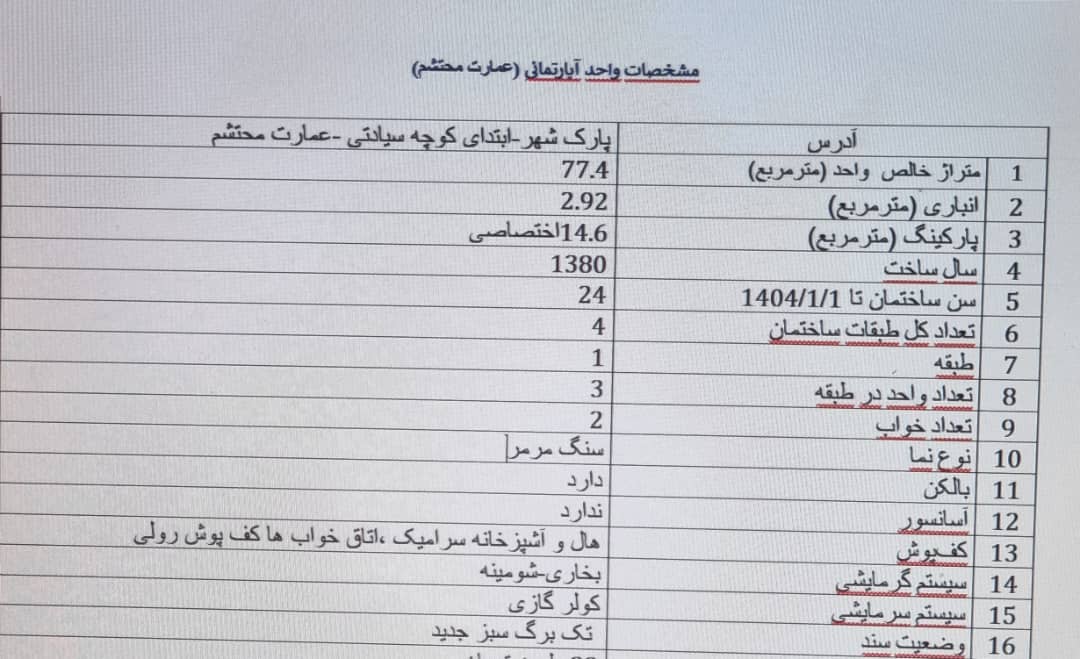 مشخصات واحد آپارتمانی (عمارت محتشم)
آدرس پارک شهر-ابتدای کوچه سیادتی -عمارت محتشم
1 متراژ خالص واحد (مترمربع) 77.4
2 انباری (مترمربع) 2.92
3 پارکینگ (مترمربع) 14.6اختصاصی
4 سال ساخت 1380
5 سن ساختمان تا 1404/1/1 24
6 تعداد کل طبقات ساختمان 4
7 طبقه 1
8 تعداد واحد در طبقه 3
9 تعداد خواب 2
10 نوع نما سنگ مرمر
11 بالکن دارد
12 آسانسور ندارد
13 کفپوش هال و آشپزخانه سرامیک ،اتاق خواب ها کف پوش رولی
14 سیستم گرمایشی بخاری-شومینه
15 سیستم سرمایشی کولر گازی
16 وضعیت سند تک برگ سبز جدید